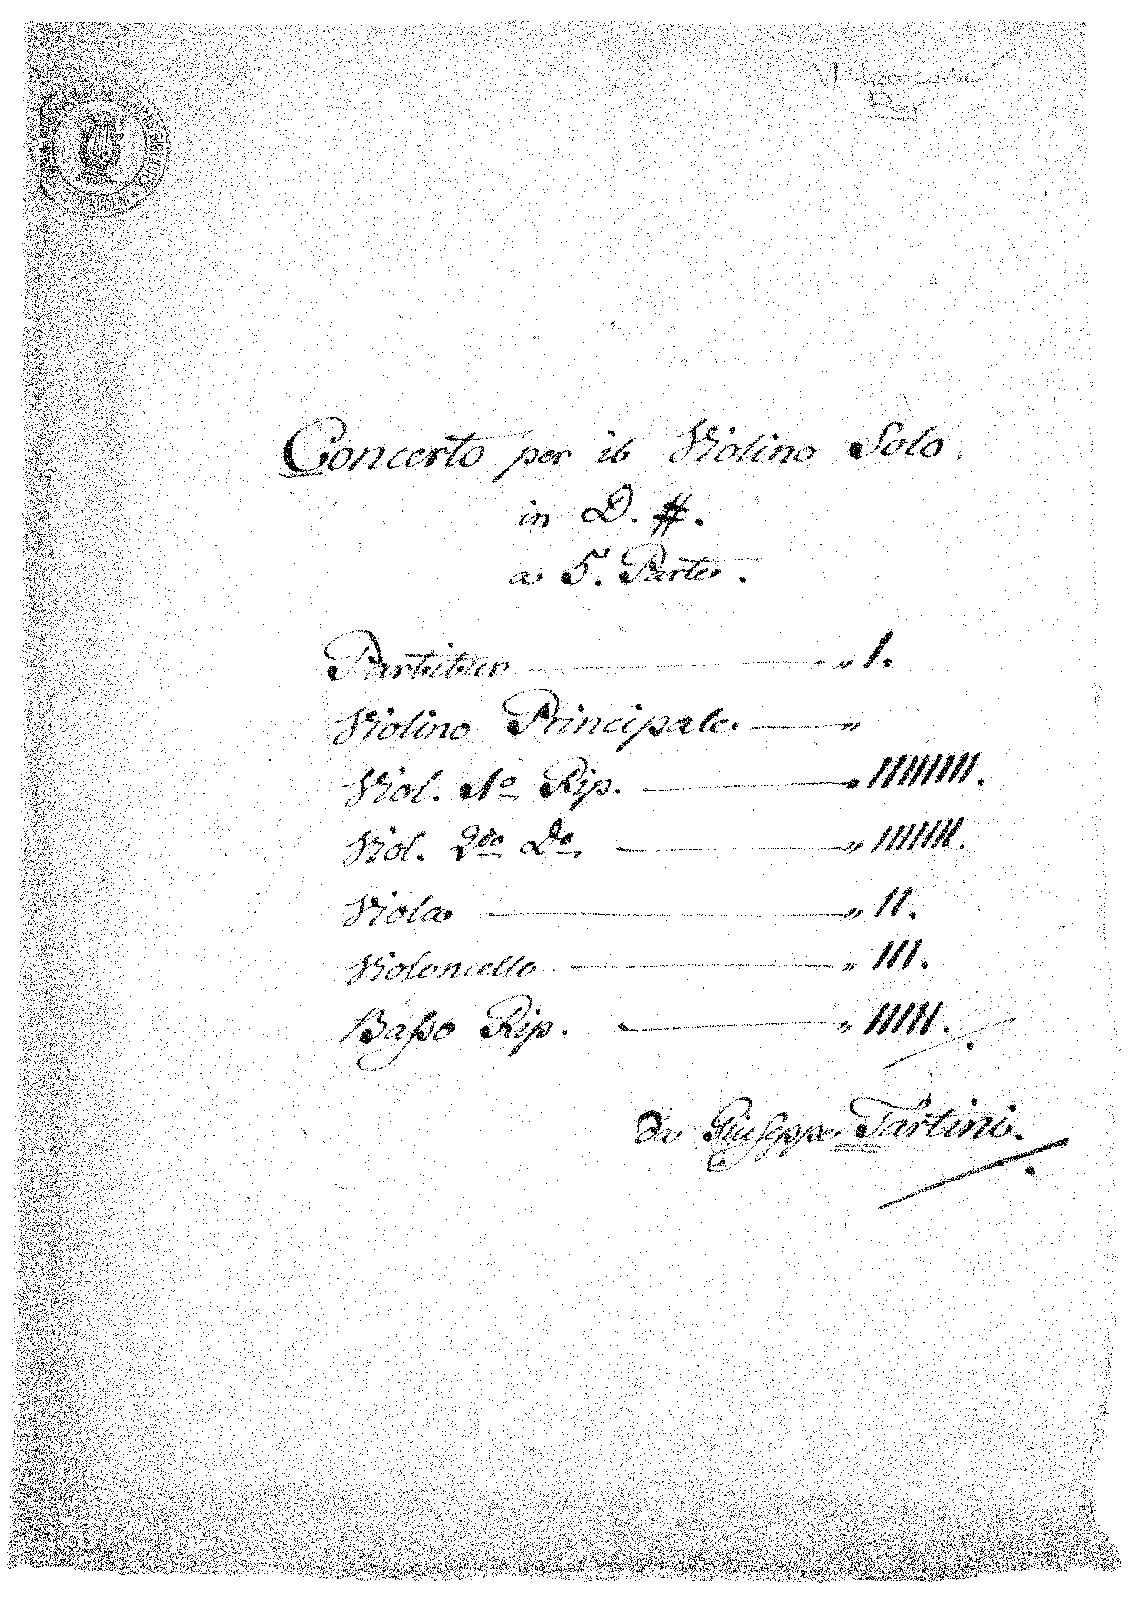 Concerto per il Violino Solo.
in D. #.
a 5. Parte.
Partitur — " 1.
Violino Principale. — "
Viol. 1º Rip. — " IIIIIIII.
Viol. 2do Do. — " IIIIIII.
Viola — " II.
Violoncello — " III.
Baßo Rip. — " IIIII.
Da Giuseppe Tartini.